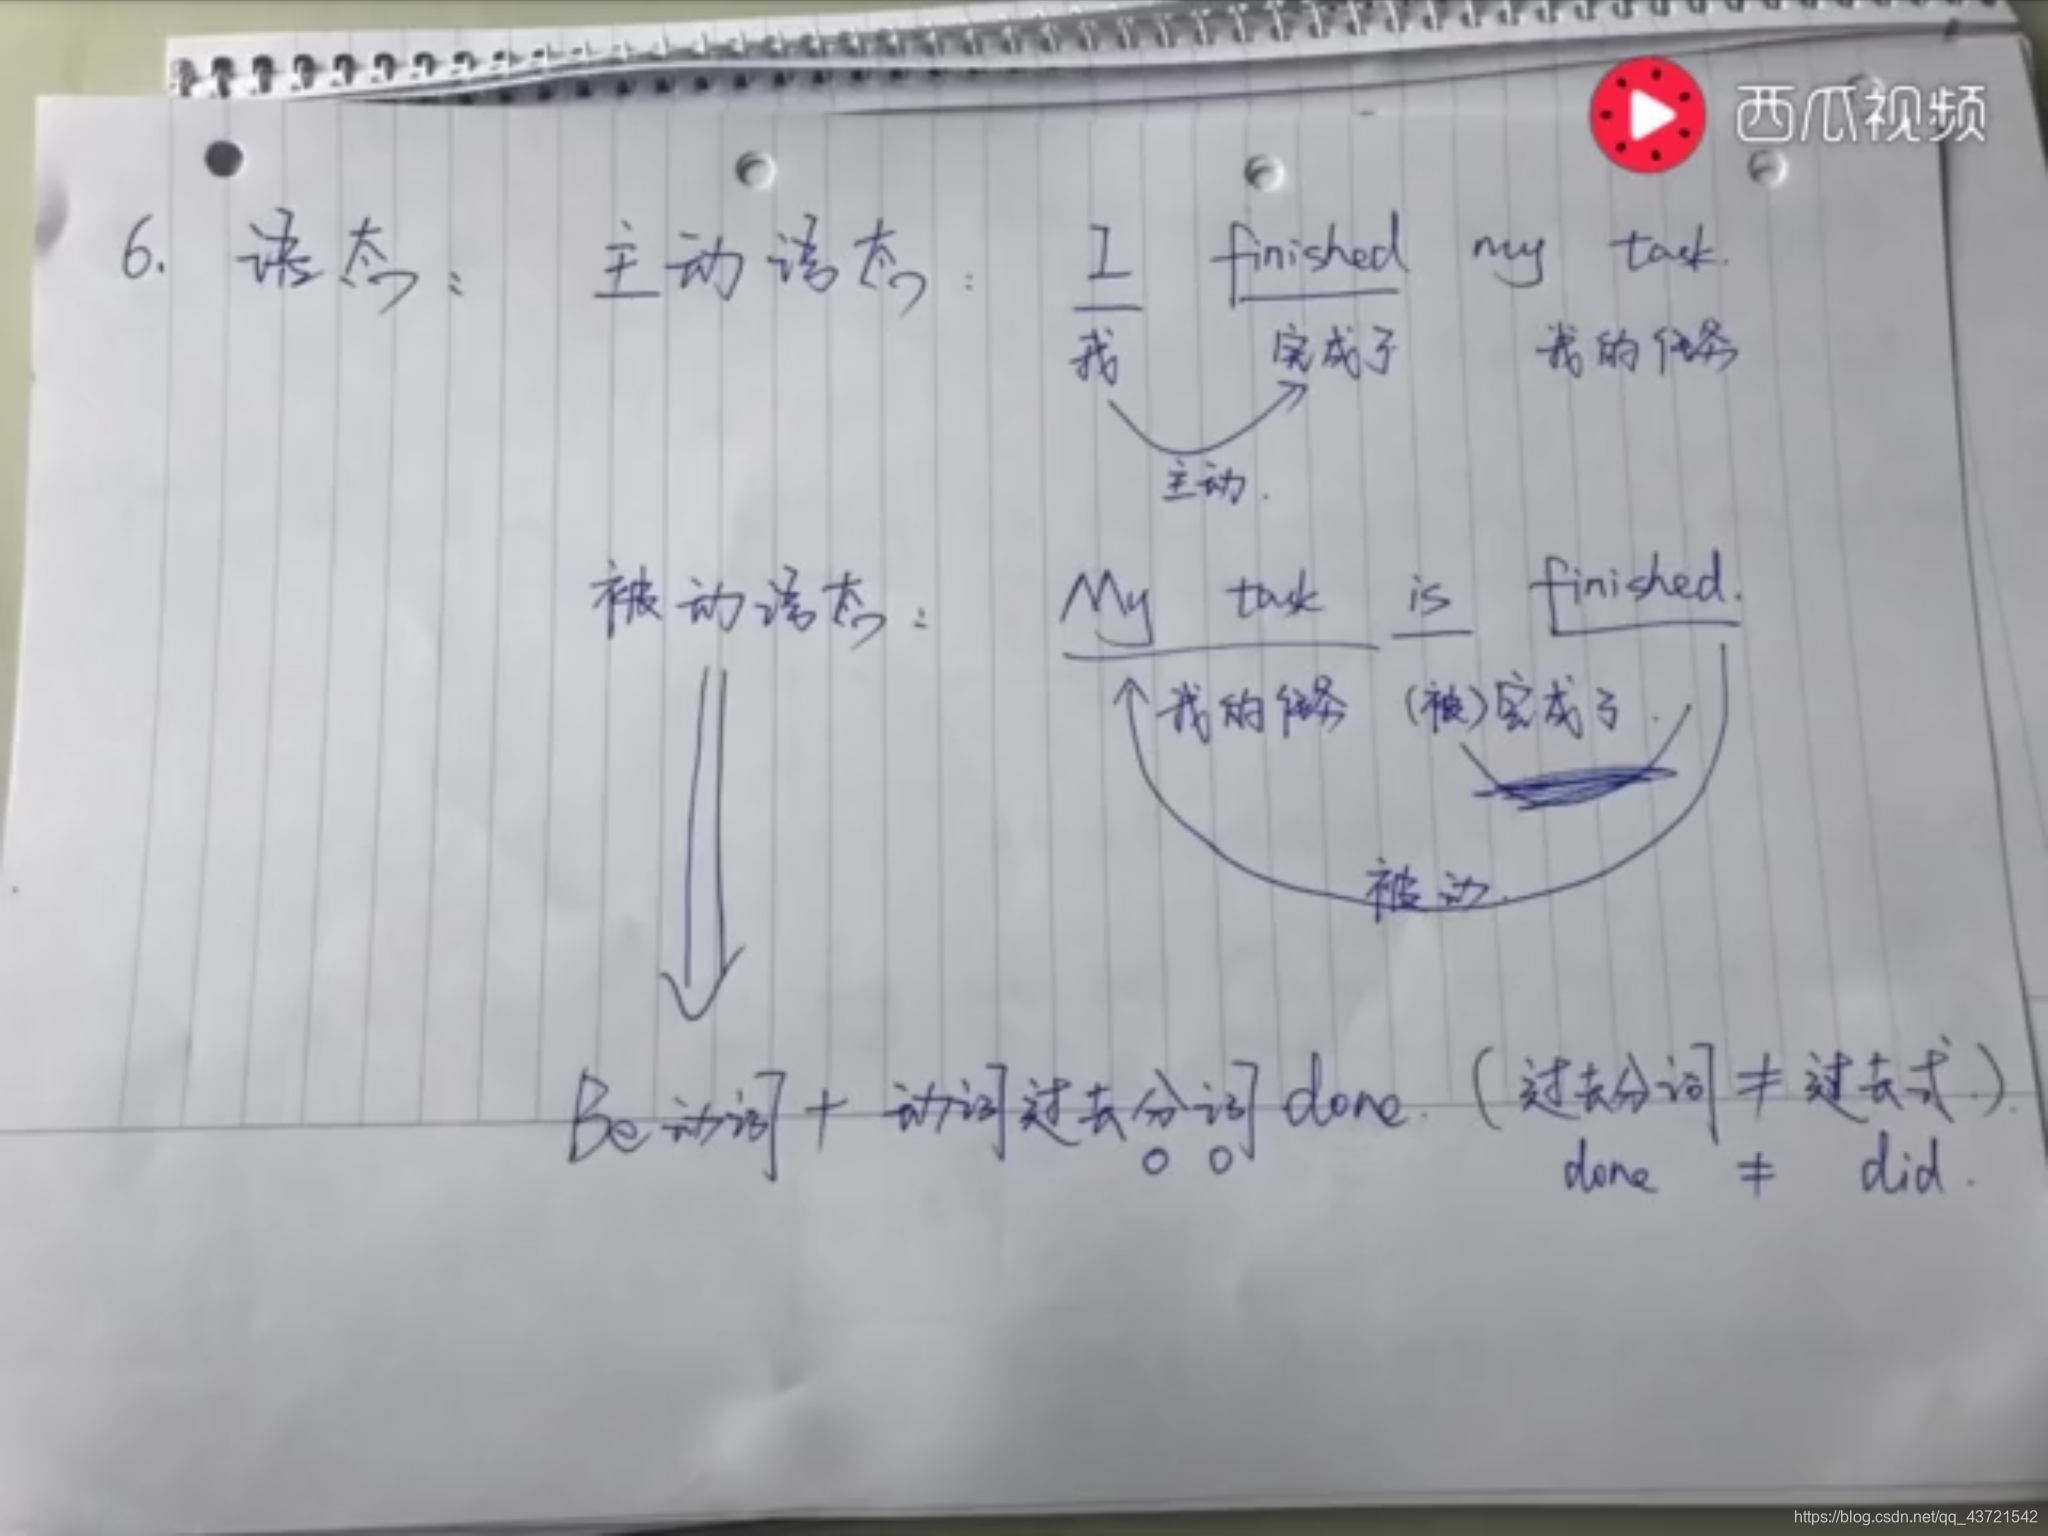 西瓜视频
6. 语态: 主动语态: I finished my task.
我 完成了 我的任务
主动.
被动语态: My task is finished.
我的任务 (被)完成了.
被动.
Be动词 + 动词过去分词 done. (过去分词 ≠ 过去式.).
done ≠ did.
https://blog.csdn.net/qq_43721542